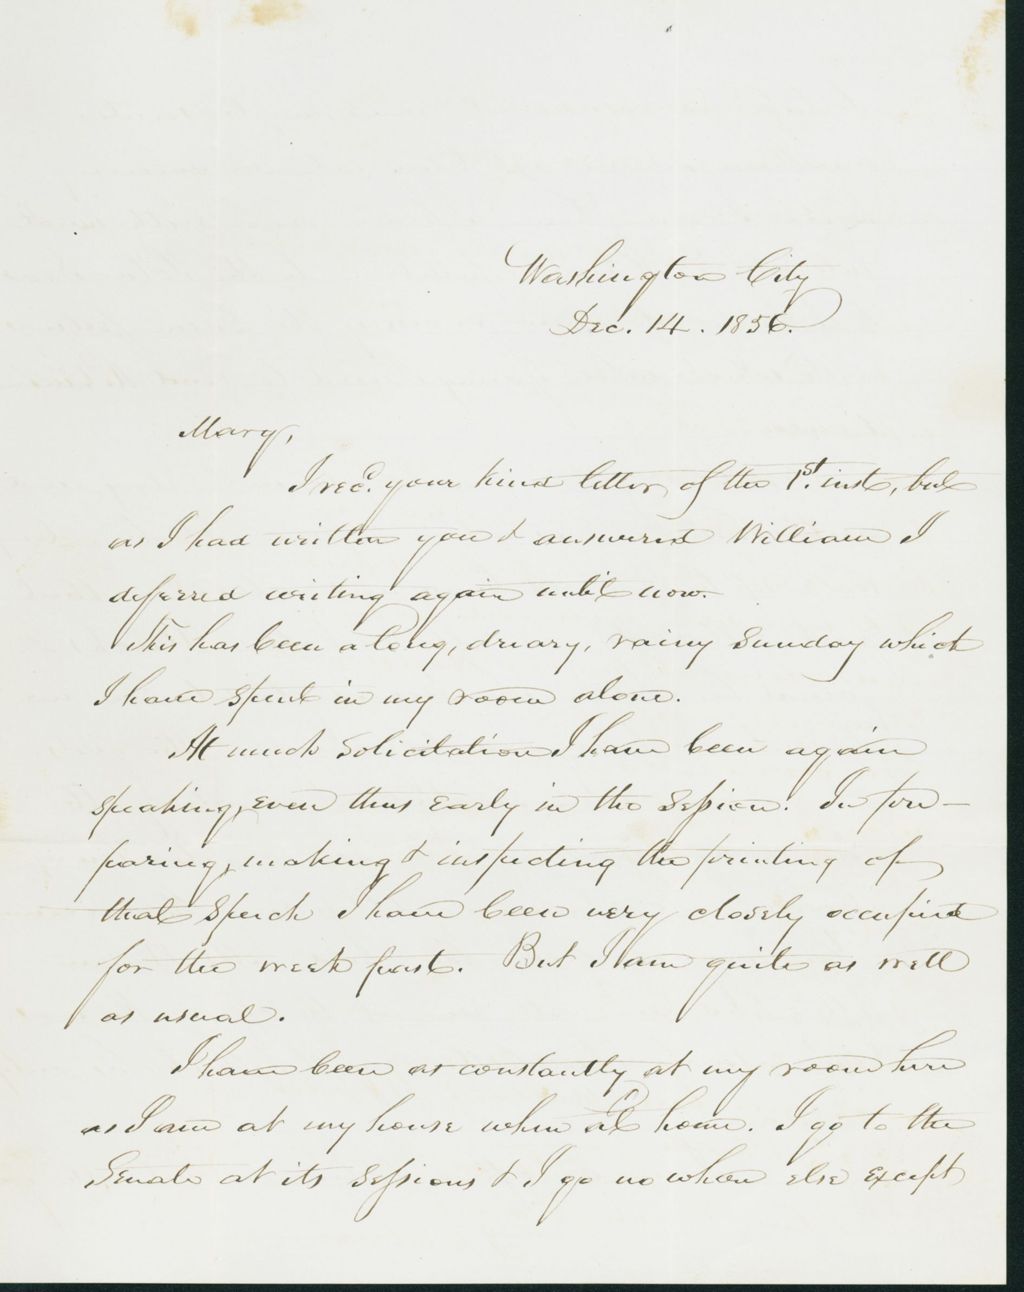 Washington City
Dec. 14. 1856.
Mary,
I recd. your kind letter, of the 1st. inst, but
as I had written you & answered William I
deferred writing again until now.
This has been a long, dreary, rainy Sunday which
I have spent in my room alone.
At much solicitation I have been again
speaking, even thus early in the session. In pre-
paring, making & inspecting the printing of
that speech I have been very closely occupied
for the week past. But I am quite as well
as usual.
I have been as constantly at my room here
as I am at my house when at home. I go to the
Senate at its sessions & I go no where else except